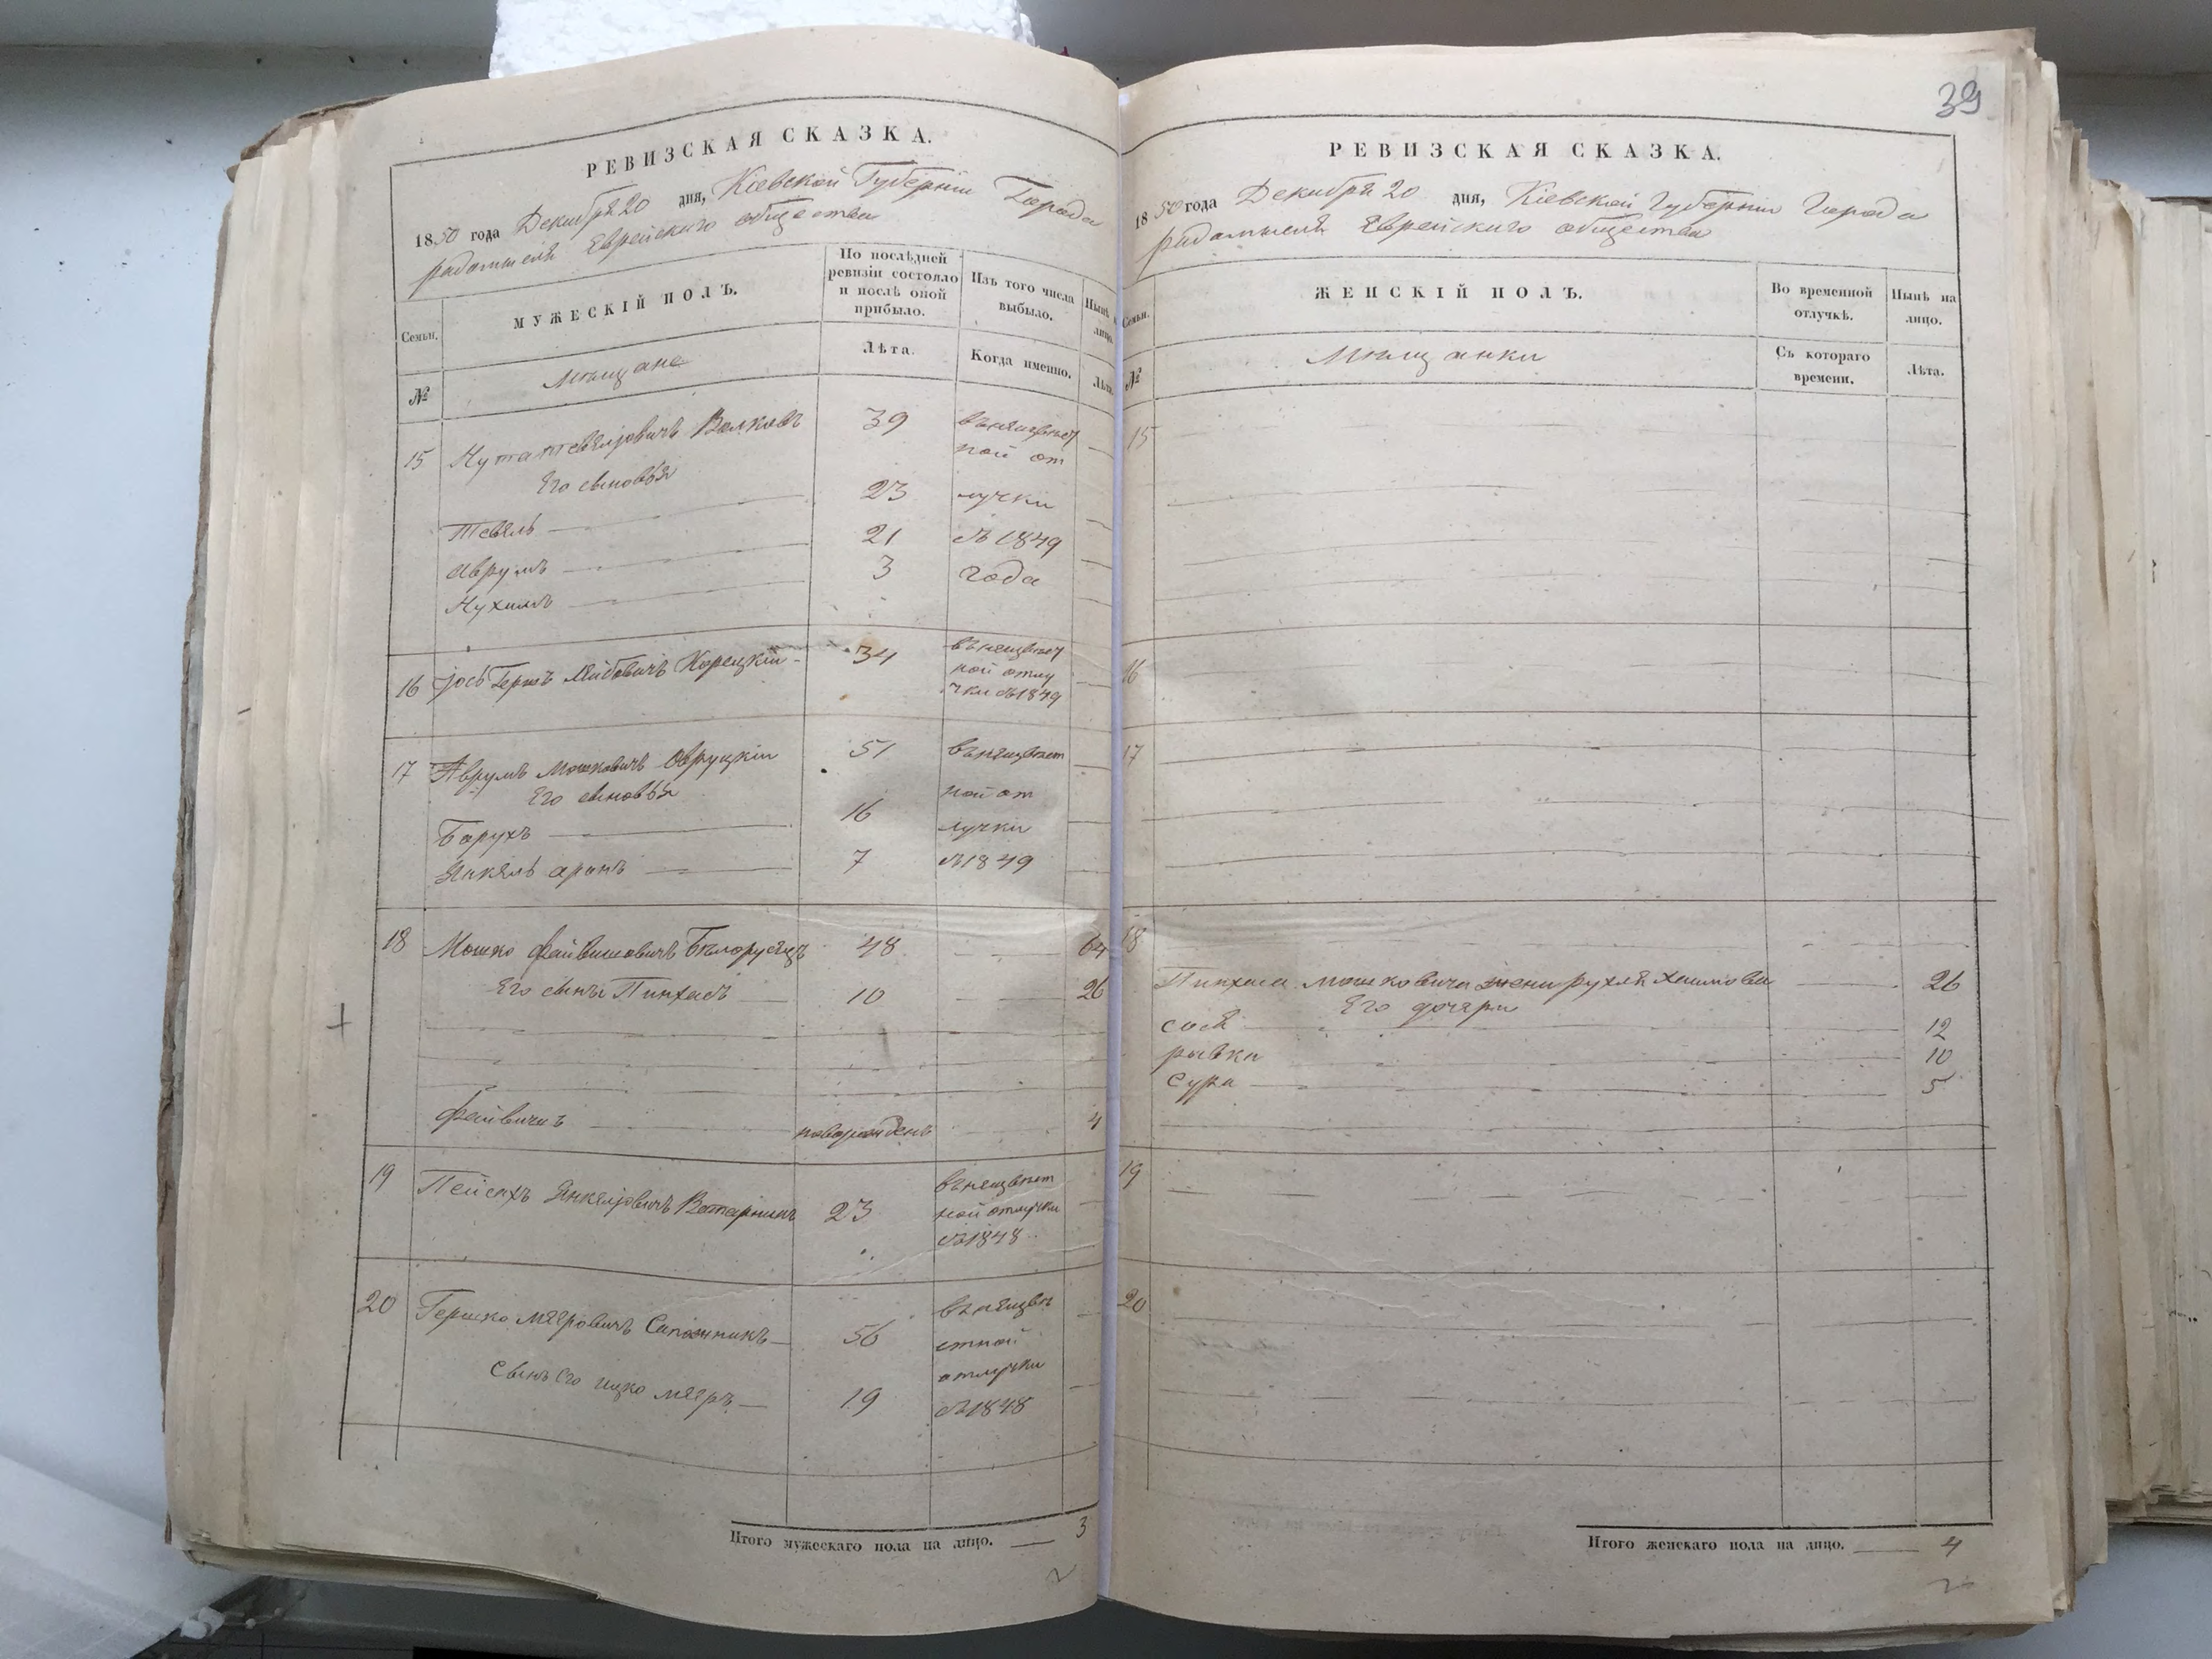 39
РЕВИЗСКАЯ СКАЗКА.
1850 года Декабря 20 дня, Кіевской Губерніи Города
радомысля Еврейскаго общества
Семьи. МУЖЕСКІЙ ПОЛЪ. По послѣдней ревизіи состояло и послѣ оной прибыло. Изъ того числа выбыло. Нынѣ на лицо.
№ Мѣщане Лѣта. Когда именно. Лѣта.
15 Нута Тевелјовичъ Волковъ 39 въ неизвѣст
ной от
Его сыновья
Тевель 23 лучки
Аврумъ 21 съ 1849
Нухимъ 3 года
16 јось Гершъ Лейбовичъ Корецкій 34 въ неизвѣст
ной отлу
чки съ 1849
17 Аврумъ Мошковичъ Овруцкій 51 въ неизвѣст
Его сыновья ной от
Борухъ 16 лучки
Янкель аронъ 7 съ 1849
18 Мошко Файвишовичъ Бѣлорусецъ 48 64
Его сынъ Пинхасъ 10 26
Файвишъ новорожденъ 4
19 Пейсахъ Янкелјовичъ 23 въ неизвѣст
ной отлучки
съ 1848
20 Гершко Мееровичъ Сапожникъ 56 въ неизвѣ
стной
отлучки
Сынъ его ицко мееръ 19 съ 1848
Итого мужескаго пола на лицо. 3
РЕВИЗСКАЯ СКАЗКА.
1850 года Декабря 20 дня, Кіевской Губерніи Города
радомысля Еврейскаго общества
Семьи. ЖЕНСКІЙ ПОЛЪ. Во временной отлучкѣ. Нынѣ на лицо.
№ Мѣщанки Съ котораго времени. Лѣта.
15
16
17
18
Пинхаса Мошковича жена рухля Хаимовна 26
Его дочери
сося 12
рывка 10
Сура 5
19
20
Итого женскаго пола на лицо. 4